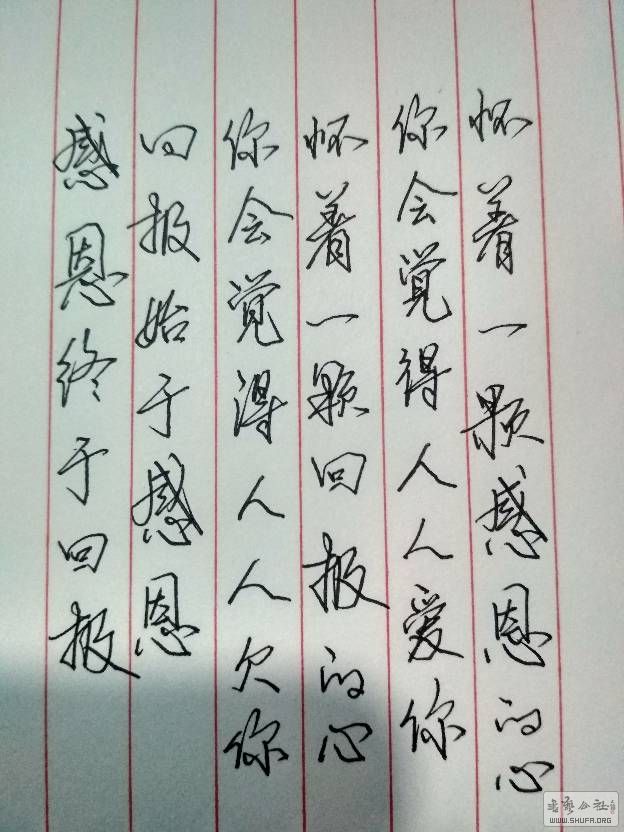 怀着一颗感恩的心
你会觉得人人爱你
怀着一颗回报的心
你会觉得人人欠你
回报始于感恩
感恩终于回报
WWW.SHUFA.ORG